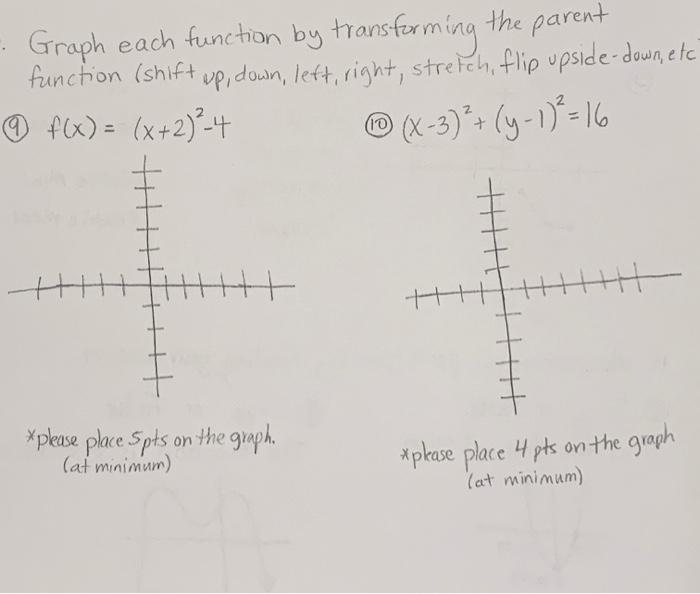 . Graph each function by transforming the parent
function (shift up, down, left, right, stretch, flip upside-down, etc
⑨ f(x) = (x+2)²-4
⑩ (x-3)² + (y-1)² = 16
*please place 5pts on the graph.
(at minimum)
*please place 4 pts on the graph
(at minimum)